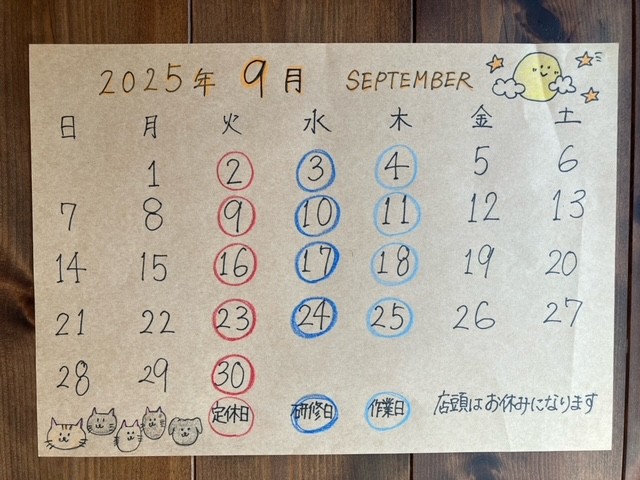 2025年 9月 SEPTEMBER
日 月 火 水 木 金 土
1 2 3 4 5 6
7 8 9 10 11 12 13
14 15 16 17 18 19 20
21 22 23 24 25 26 27
28 29 30
定休日 研修日 作業日 店頭はお休みになります